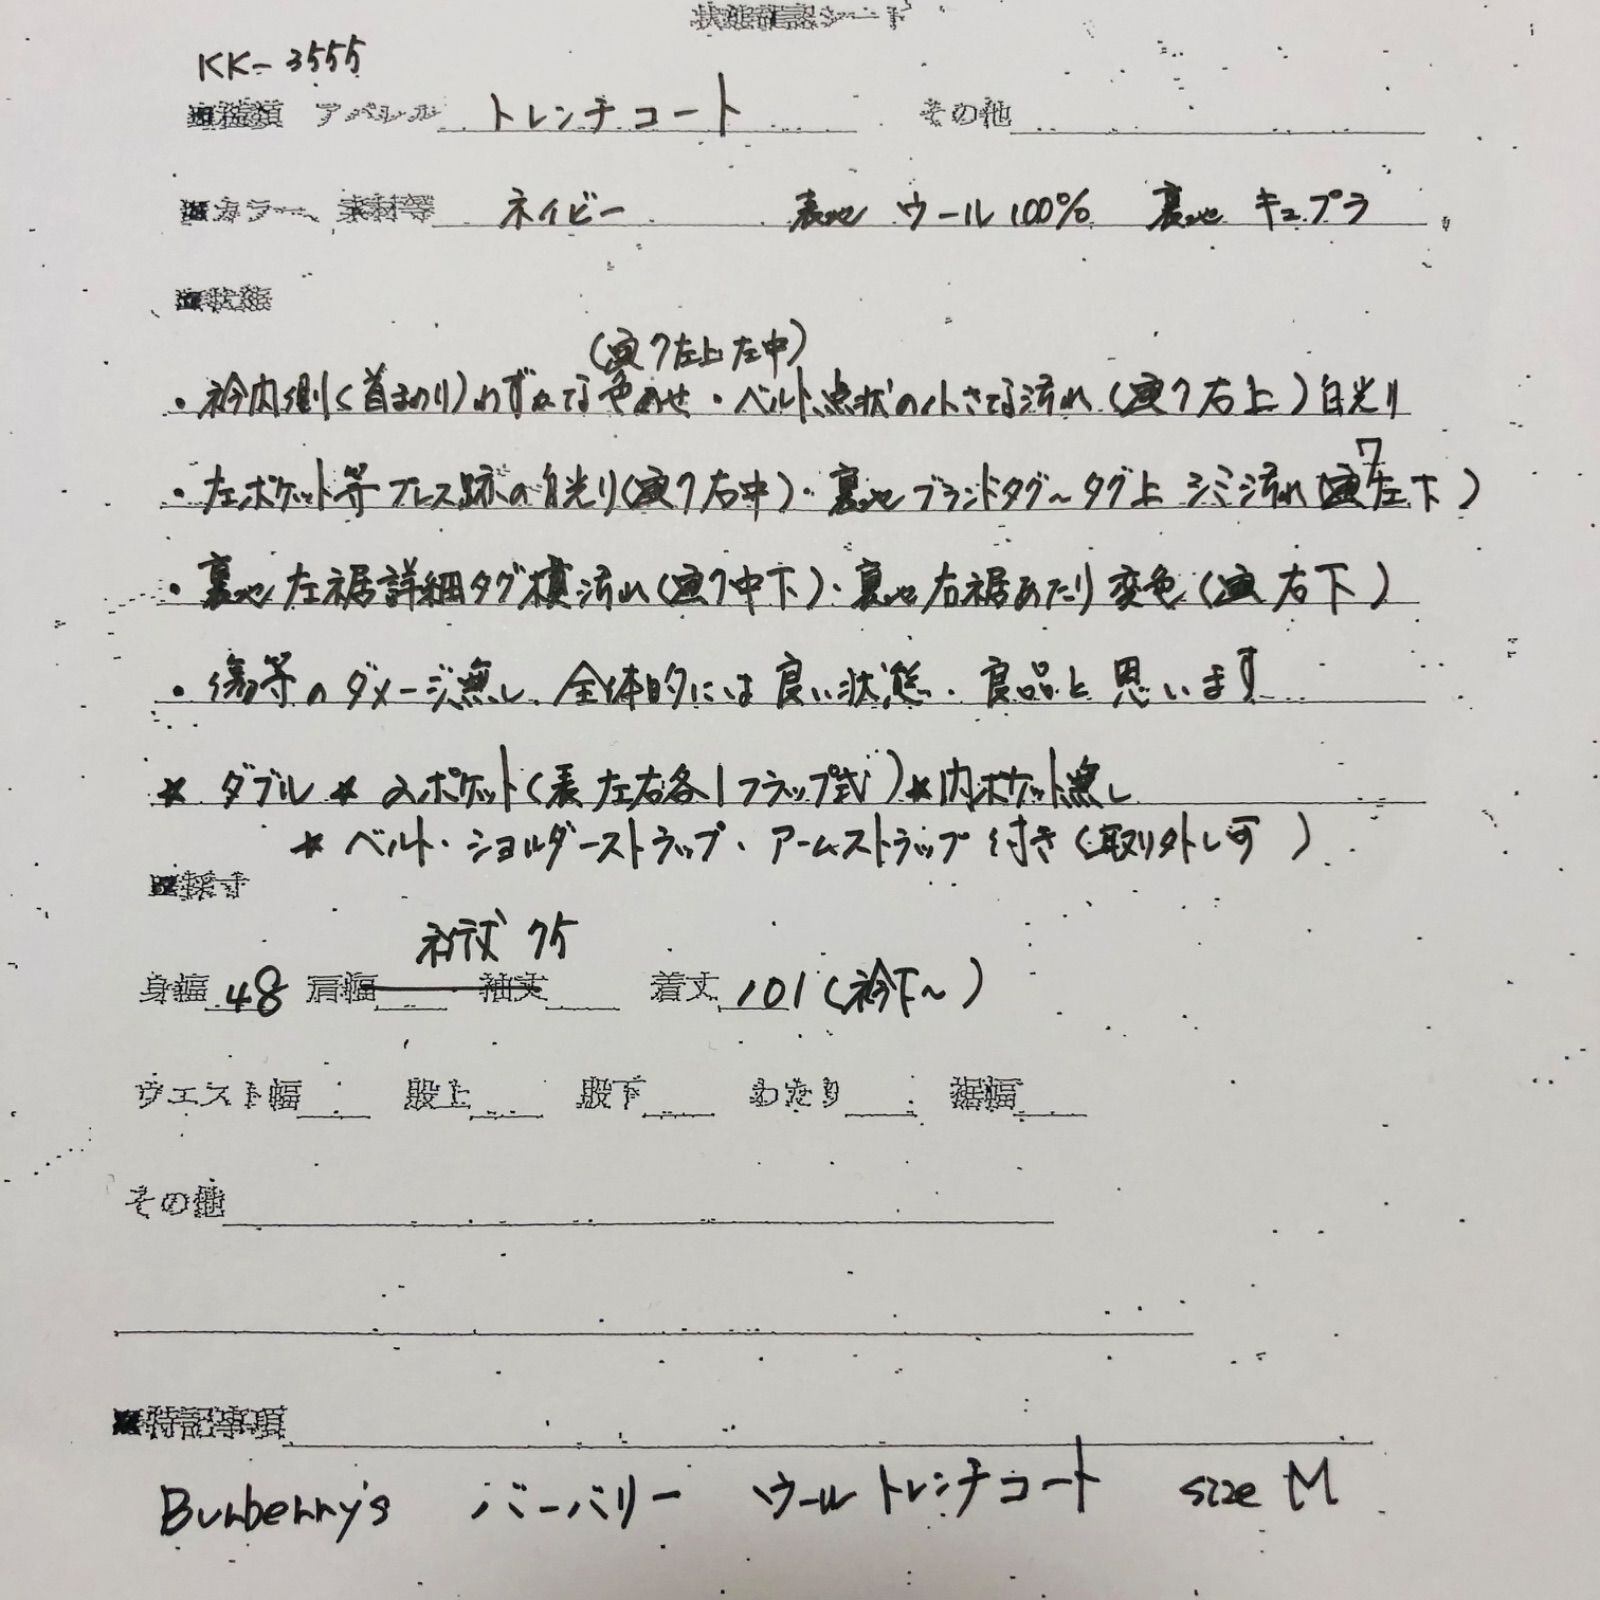 状態確認シート
KK-3555
■種類 アパレル トレンチコート その他
■カラー、素材等 ネイビー 表地 ウール100% 裏地 キュプラ
■状態
(画7左上左中)
・衿内側(首まわり)わずかな色あせ・ベルト点状の小さな汚れ(画7右上)自光り
・左ポケット等プレス跡の自光り(画7右中)・裏地ブランドタグ〜タグ上シミ汚れ(画7左下)
・裏地左裾詳細タグ横汚れ(画7中下)・裏地右裾あたり変色(画右下)
・傷等のダメージ無し、全体的には良い状態・良品と思います
* ダブル * 2ポケット(表左右各1フラップ式)*内ポケット無し
* ベルト・ショルダーストラップ・アームストラップ付き(取り外し可)
■採寸
裄丈 75
身幅 48 肩幅 袖丈 着丈 101(衿下〜)
ウエスト幅 股上 股下 わたり 裾幅
その他
■特記事項
Burberry's バーバリー ウールトレンチコート size M